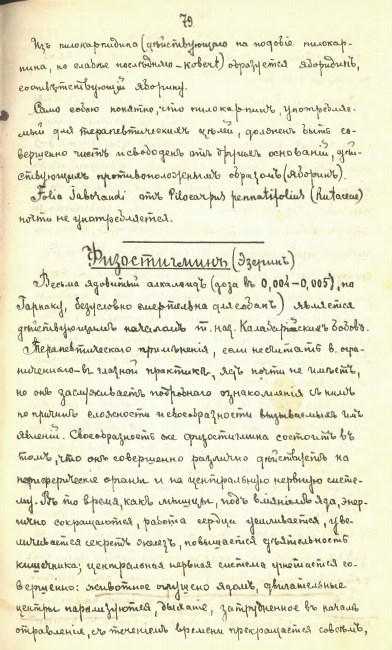 79
Изъ пилокарпидина (дѣйствующаго на подобіе пилокар-
пина, но слабѣе послѣдняго – Kobert) образуется яборидинъ,
соотвѣтствующій яборину.
Само собою понятно, что пилокарпинъ, употребляе-
мый для терапевтическихъ цѣлей, долженъ быть со-
вершенно чистъ и свободенъ отъ другихъ основаній, дѣй-
ствующихъ противоположнымъ образомъ (яборинъ).
Folia Jaborandi отъ Pilocarpus pennatifolius (Rutaceae)
почти не употребляется.
Физостигминъ (Эзеринъ)
Весьма ядовитый алкалоидъ (доза въ 0,004–0,005), по
Гарнаку, безусловно смертельна для собакъ) является
дѣйствующимъ началомъ т. наз. Калабарійскихъ бобовъ.
Терапевтическаго примѣненія, если не считать огра-
ниченнаго въ глазной практикѣ, ядъ почти не имѣетъ,
но онъ заслуживаетъ подробнаго ознакомленія съ нимъ
по причинѣ сложности и своеобразности вызываемыхъ имъ
явленій. Своеобразность же физостигмина состоитъ въ
томъ, что онъ совершенно различно дѣйствуетъ на
периферическіе органы и на центральную нервную систе-
му. Въ то время, какъ мышцы, подъ вліяніемъ яда, энер-
гично сокращаются, работа сердца усиливается, уве-
личивается секретъ железъ, повышается дѣятельность
кишечника; центральная нервная система угнетается со-
вершенно: животное оглушено ядомъ, двигательные
центры парализуются, дыханіе, затрудненное въ началѣ
отравленія, съ теченіемъ времени прекращается совсѣмъ,